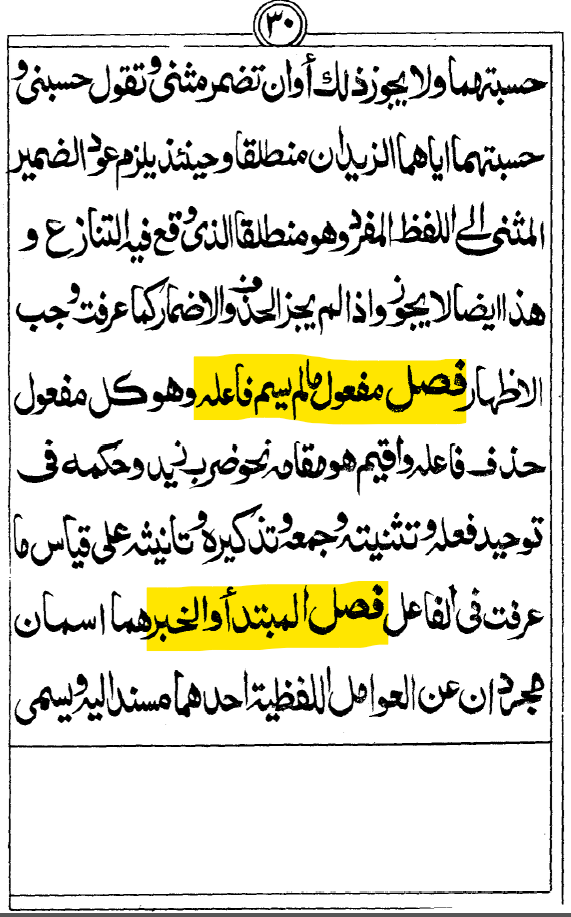 ٣٠
حسبتهما ولا يجوز ذلك أو ان تضمر مثنى وتقول حسبنى و
حسبتهما اياهما الزيدان منطلقا وحينئذ يلزم عود الضمير
المثنى الى اللفظ المفرد وهو منطلقا الذى وقع فيه التنازع و
هذا ايضا لا يجوز واذا لم يجز الحذف والاضمار كما عرفت وجب
الاظهار فصل مفعول مالم يسم فاعله وهو كل مفعول
حذف فاعله واقيم هو مقامه نحو ضرب زيد وحكمه فى
توحيد فعله وتثنيته وجمعه وتذكيره وتانيثه على قياس ما
عرفت فى الفاعل فصل المبتدأ والخبر هما اسمان
مجردان عن العوامل اللفظية احدهما مسند اليه ويسمى